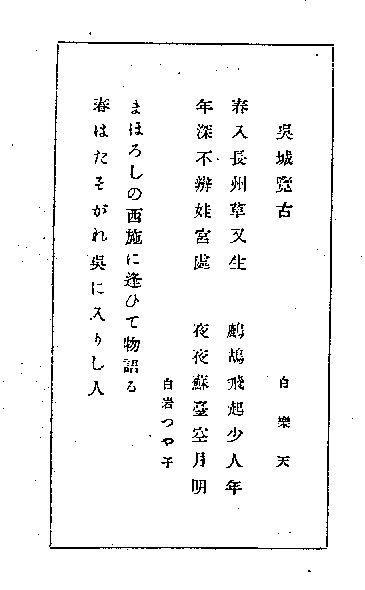 吳城覽古
白樂天
春入長州草又生 鷓鴣飛起少人年
年深不辨娃宮處 夜夜蘇臺空月明
白岩つや子
まほろしの西施に逢ひて物語る
春はたそがれ吳に入りし人